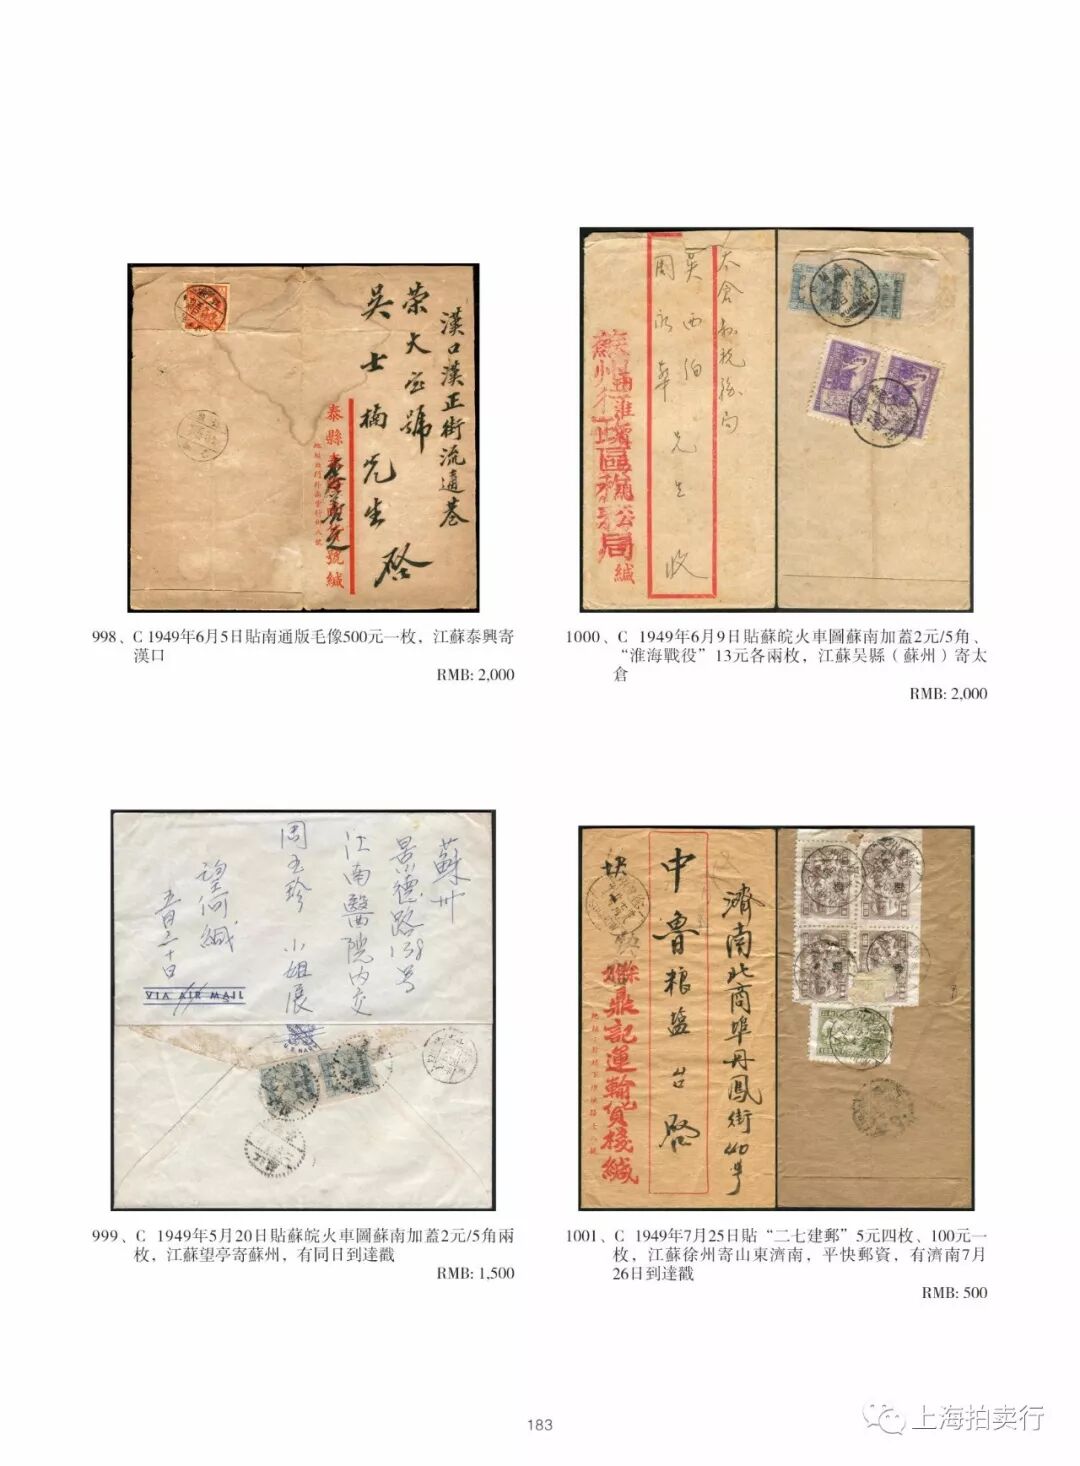 漢口漢正街流通巷
榮大宝號
吳士楠先生 啓
泰縣
號緘
998、C 1949年6月5日貼南通版毛像500元一枚，江蘇泰興寄
漢口
RMB: 2,000
太倉縣稅務局
吳西伯
周永華 先生 收
蘇州
緘
1000、C 1949年6月9日貼蘇皖火車圖蘇南加蓋2元/5角、
“淮海戰役”13元各兩枚，江蘇吴縣（蘇州）寄太
倉
RMB: 2,000
蘇州
景德路138号
江南醫院内交
周玉珍 小姐展
望何緘
五月二十日
VIA AIR MAIL
U.S. NAVY
999、C 1949年5月20日貼蘇皖火車圖蘇南加蓋2元/5角兩
枚，江蘇望亭寄蘇州，有同日到達戳
RMB: 1,500
濟南北商埠丹鳳街40号
中魯粮盐台啓
鼎記運輸貨棧緘
1001、C 1949年7月25日貼“二七建郵”5元四枚、100元一
枚，江蘇徐州寄山東濟南，平快郵資，有濟南7月
26日到達戳
RMB: 500
183
上海拍卖行